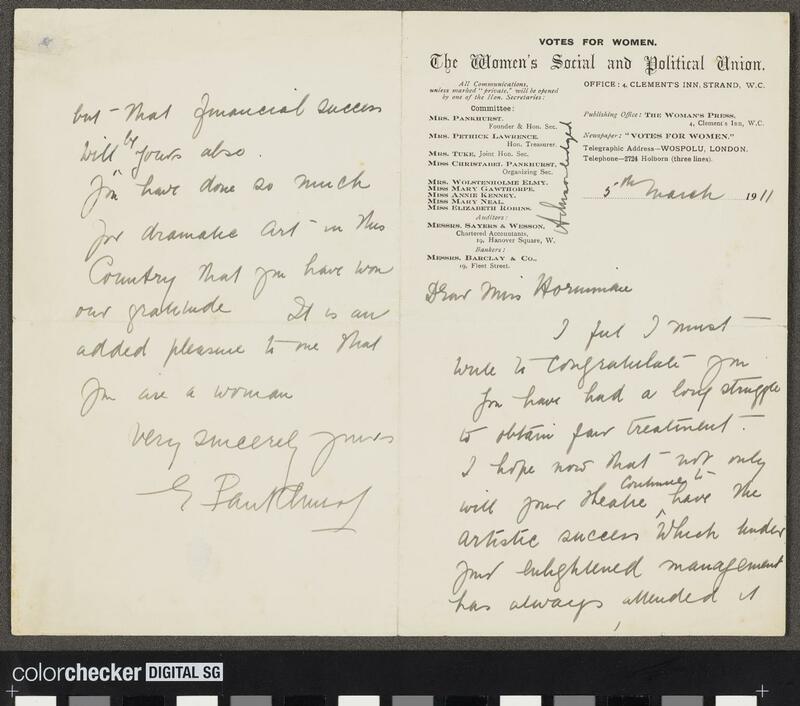 VOTES FOR WOMEN.
The Women's Social and Political Union.
All Communications,
unless marked "private," will be opened
by one of the Hon. Secretaries:
Committee:
MRS. PANKHURST,
Founder & Hon. Sec.
MRS. PETHICK LAWRENCE,
Hon. Treasurer.
MRS. TUKE, Joint Hon. Sec.
MISS CHRISTABEL PANKHURST,
Organizing Sec.
MRS. WOLSTENHOLME ELMY.
MISS MARY GAWTHORPE.
MISS ANNIE KENNEY.
MISS MARY NEAL.
MISS ELIZABETH ROBINS.
Auditors:
MESSRS. SAYERS & WESSON,
Chartered Accountants,
19, Hanover Square, W.
Bankers:
MESSRS. BARCLAY & CO.,
19, Fleet Street.
OFFICE: 4, CLEMENT'S INN, STRAND, W.C.
Publishing Office: THE WOMAN'S PRESS,
4, Clement's Inn, W.C.
Newspaper: "VOTES FOR WOMEN."
Telegraphic Address—WOSPOLU, LONDON.
Telephone—2724 Holborn (three lines).
Acknowledged
5th March 1911
Dear Miss Horniman
I feel I must
write to congratulate you
You have had a long struggle
to obtain fair treatment.
I hope now that not only
will your theatre continue to have the
artistic success which under
your enlightened management
has always attended it
but that financial success
will be yours also.
You have done so much
for dramatic art in this
Country that you have won
our gratitude It is an
added pleasure to me that
you are a woman
Very sincerely yours
E Pankhurst
colorchecker DIGITAL SG